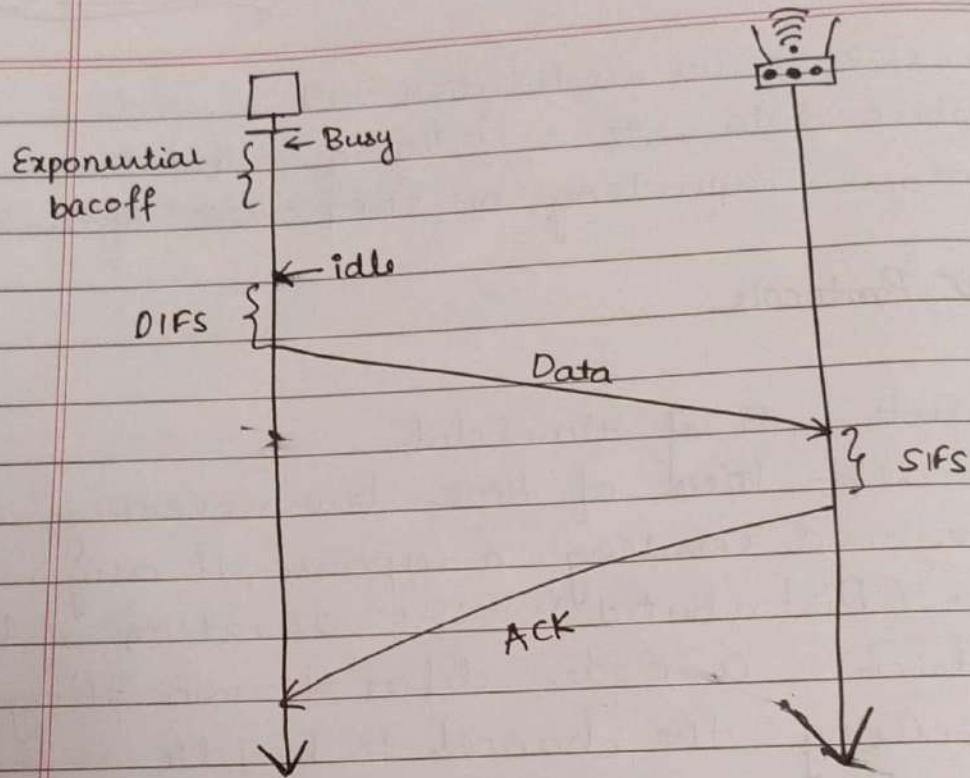 Busy
Exponential
bacoff
idle
DIFS
Data
SIFS
ACK